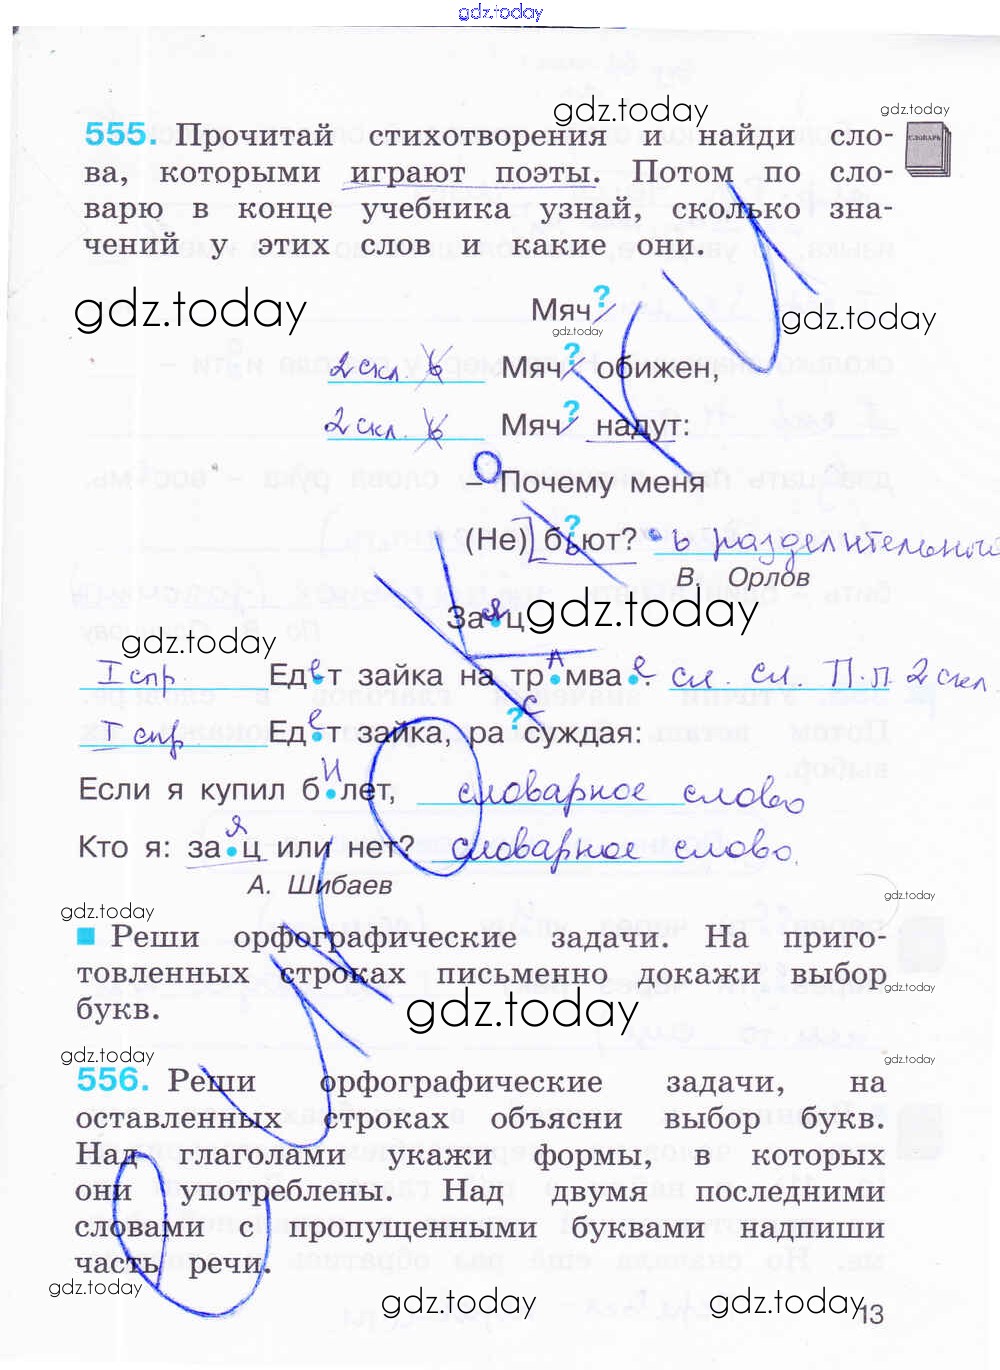 gdz.today
gdz.today
gdz.today
555. Прочитай стихотворения и найди сло-
ва, которыми играют поэты. Потом по сло-
варю в конце учебника узнай, сколько зна-
чений у этих слов и какие они.
СЛОВАРЬ
gdz.today
gdz.today
Мяч ?
gdz.today
2 скл. ь Мяч ? обижен,
2 скл. ь Мяч ? надут:
– Почему меня
(Не) бьют? ь разделительного
В. Орлов
gdz.today
Заяц
gdz.today
I спр. Едет зайка на трАмвае. сл. сл. П.п. 2 скл.
I спр. Едет зайка, рассуждая:
Если я купил билет, словарное слово
Кто я: заяц или нет? словарное слово
А. Шибаев
gdz.today
gdz.today
Реши орфографические задачи. На приго-
товленных строках письменно докажи выбор
букв.
gdz.today
gdz.today
gdz.today
gdz.today
556. Реши орфографические задачи, на
оставленных строках объясни выбор букв.
Над глаголами укажи формы, в которых
они употреблены. Над двумя последними
словами с пропущенными буквами надпиши
часть речи.
gdz.today
gdz.today
gdz.today
13